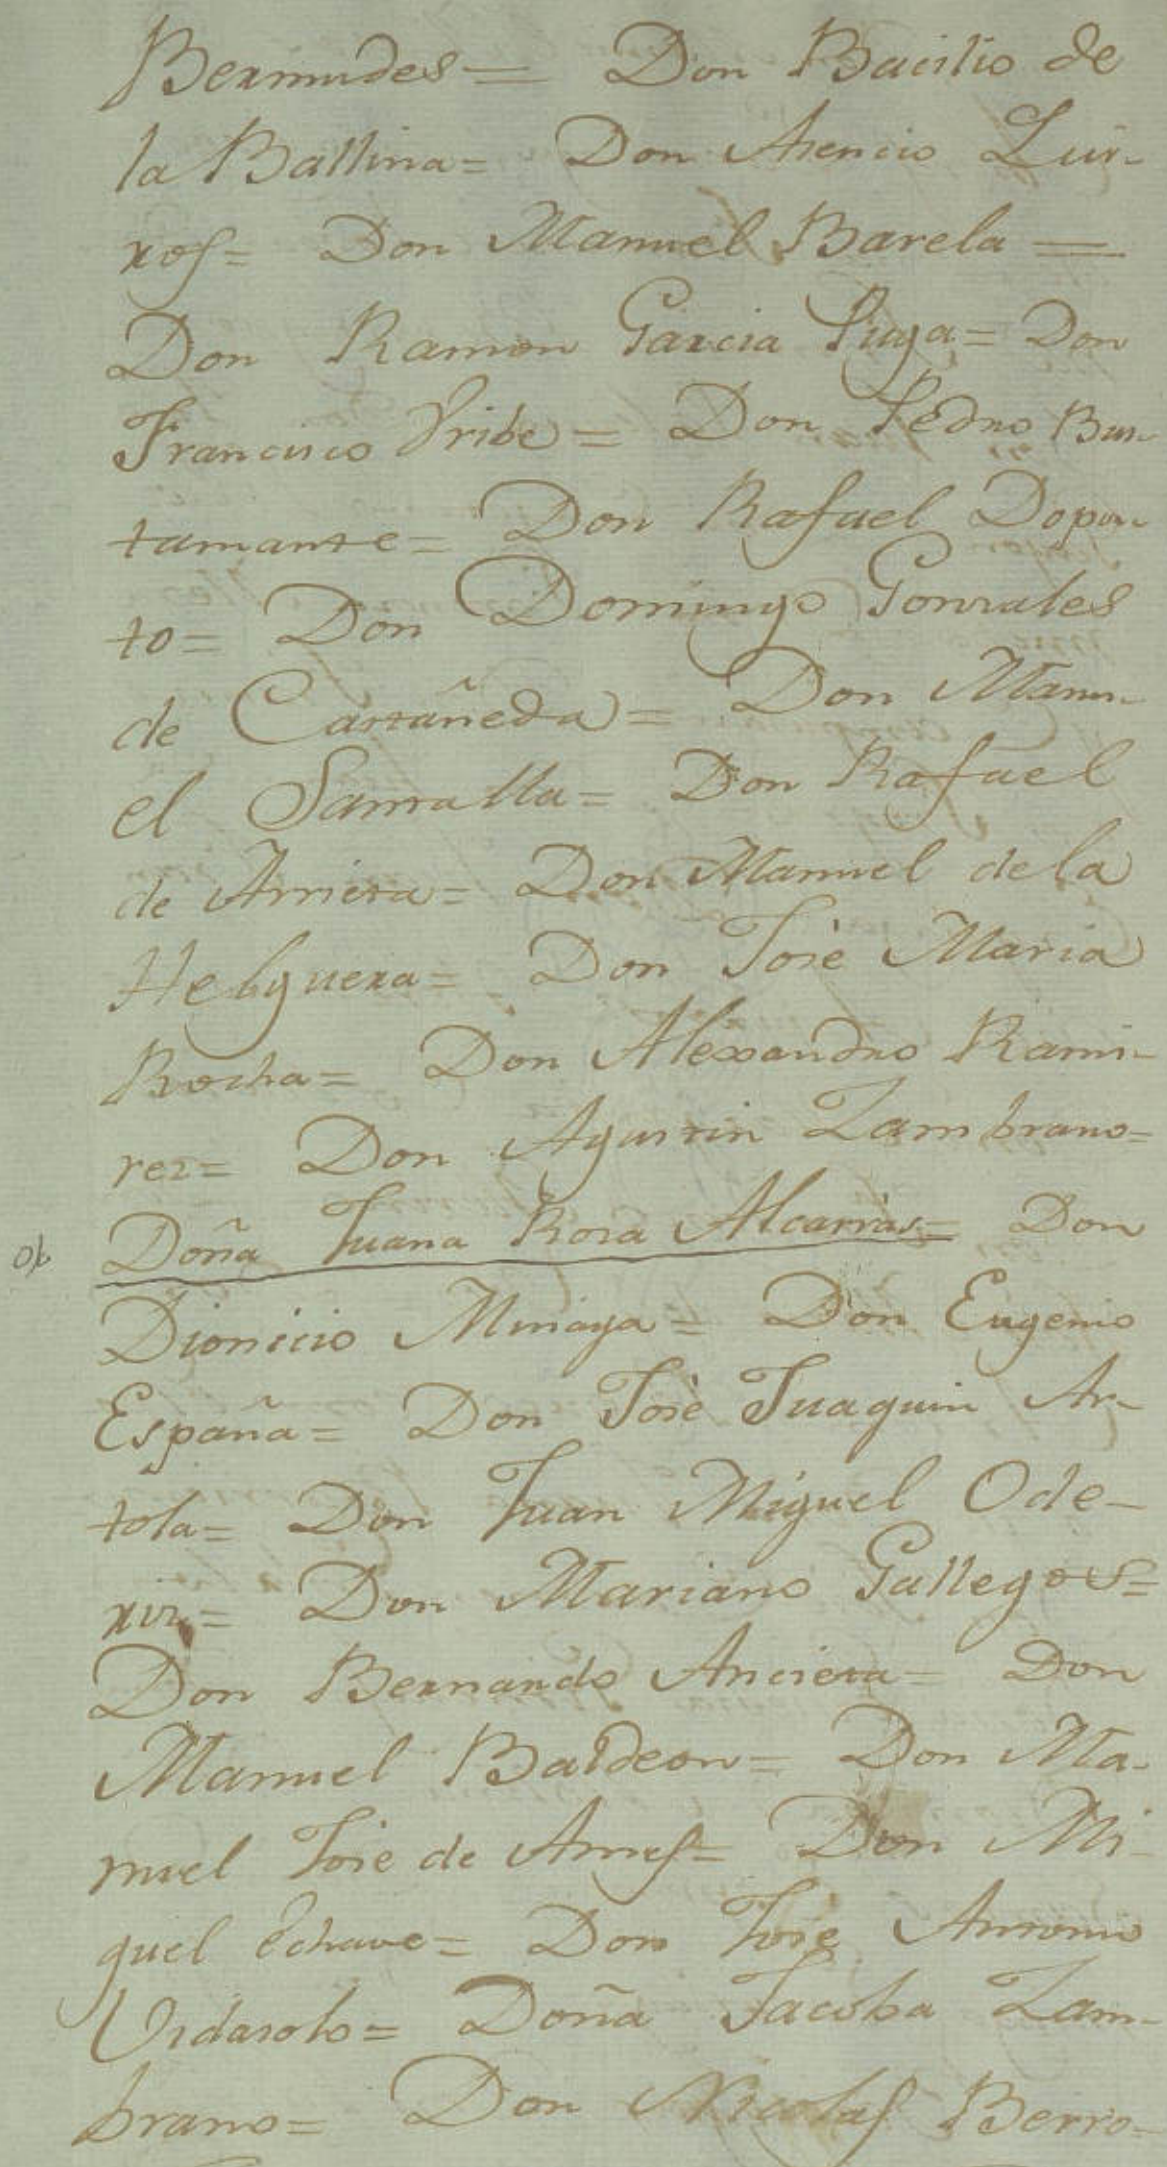 Bermudes = Don Bacilio de
la Ballina = Don Acencio Qui-
ros = Don Manuel Barela =
Don Ramon Garcia Puga = Don
Francisco Vribe = Don Pedro Bus-
tamante = Don Rafael Dopor-
to = Don Domingo Gonzales
de Castañeda = Don Manu-
el Santalla = Don Rafael
de Arrieta = Don Manuel de la
Helguera = Don José Maria
Rocha = Don Alexandro Rami-
rez = Don Agustin Zambrano =
Doña Juana Rosa Alcarrás = Don
Dionicio Miniaya = Don Eugenio
España = Don José Juaquin Ar-
tola = Don Juan Miguel Ode-
riz = Don Mariano Gallegos =
Don Bernardo Ancieta = Don
Manuel Baldeon = Don Ma-
nuel José de Ames = Don Mi-
guel Echave = Don José Antonio
Vidasolo = Doña Jacoba Zam-
brano = Don Nicolas Berro-